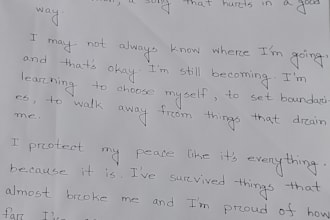 , a song that hurts in a good
way.
I may not always know where I'm going,
and that's okay. I'm still becoming. I'm
learning to choose myself, to set boundari-
es, to walk away from things that drain
me.
I protect my peace like it's everything,
because it is. I've survived things that
almost broke me and I'm proud of how
far I've